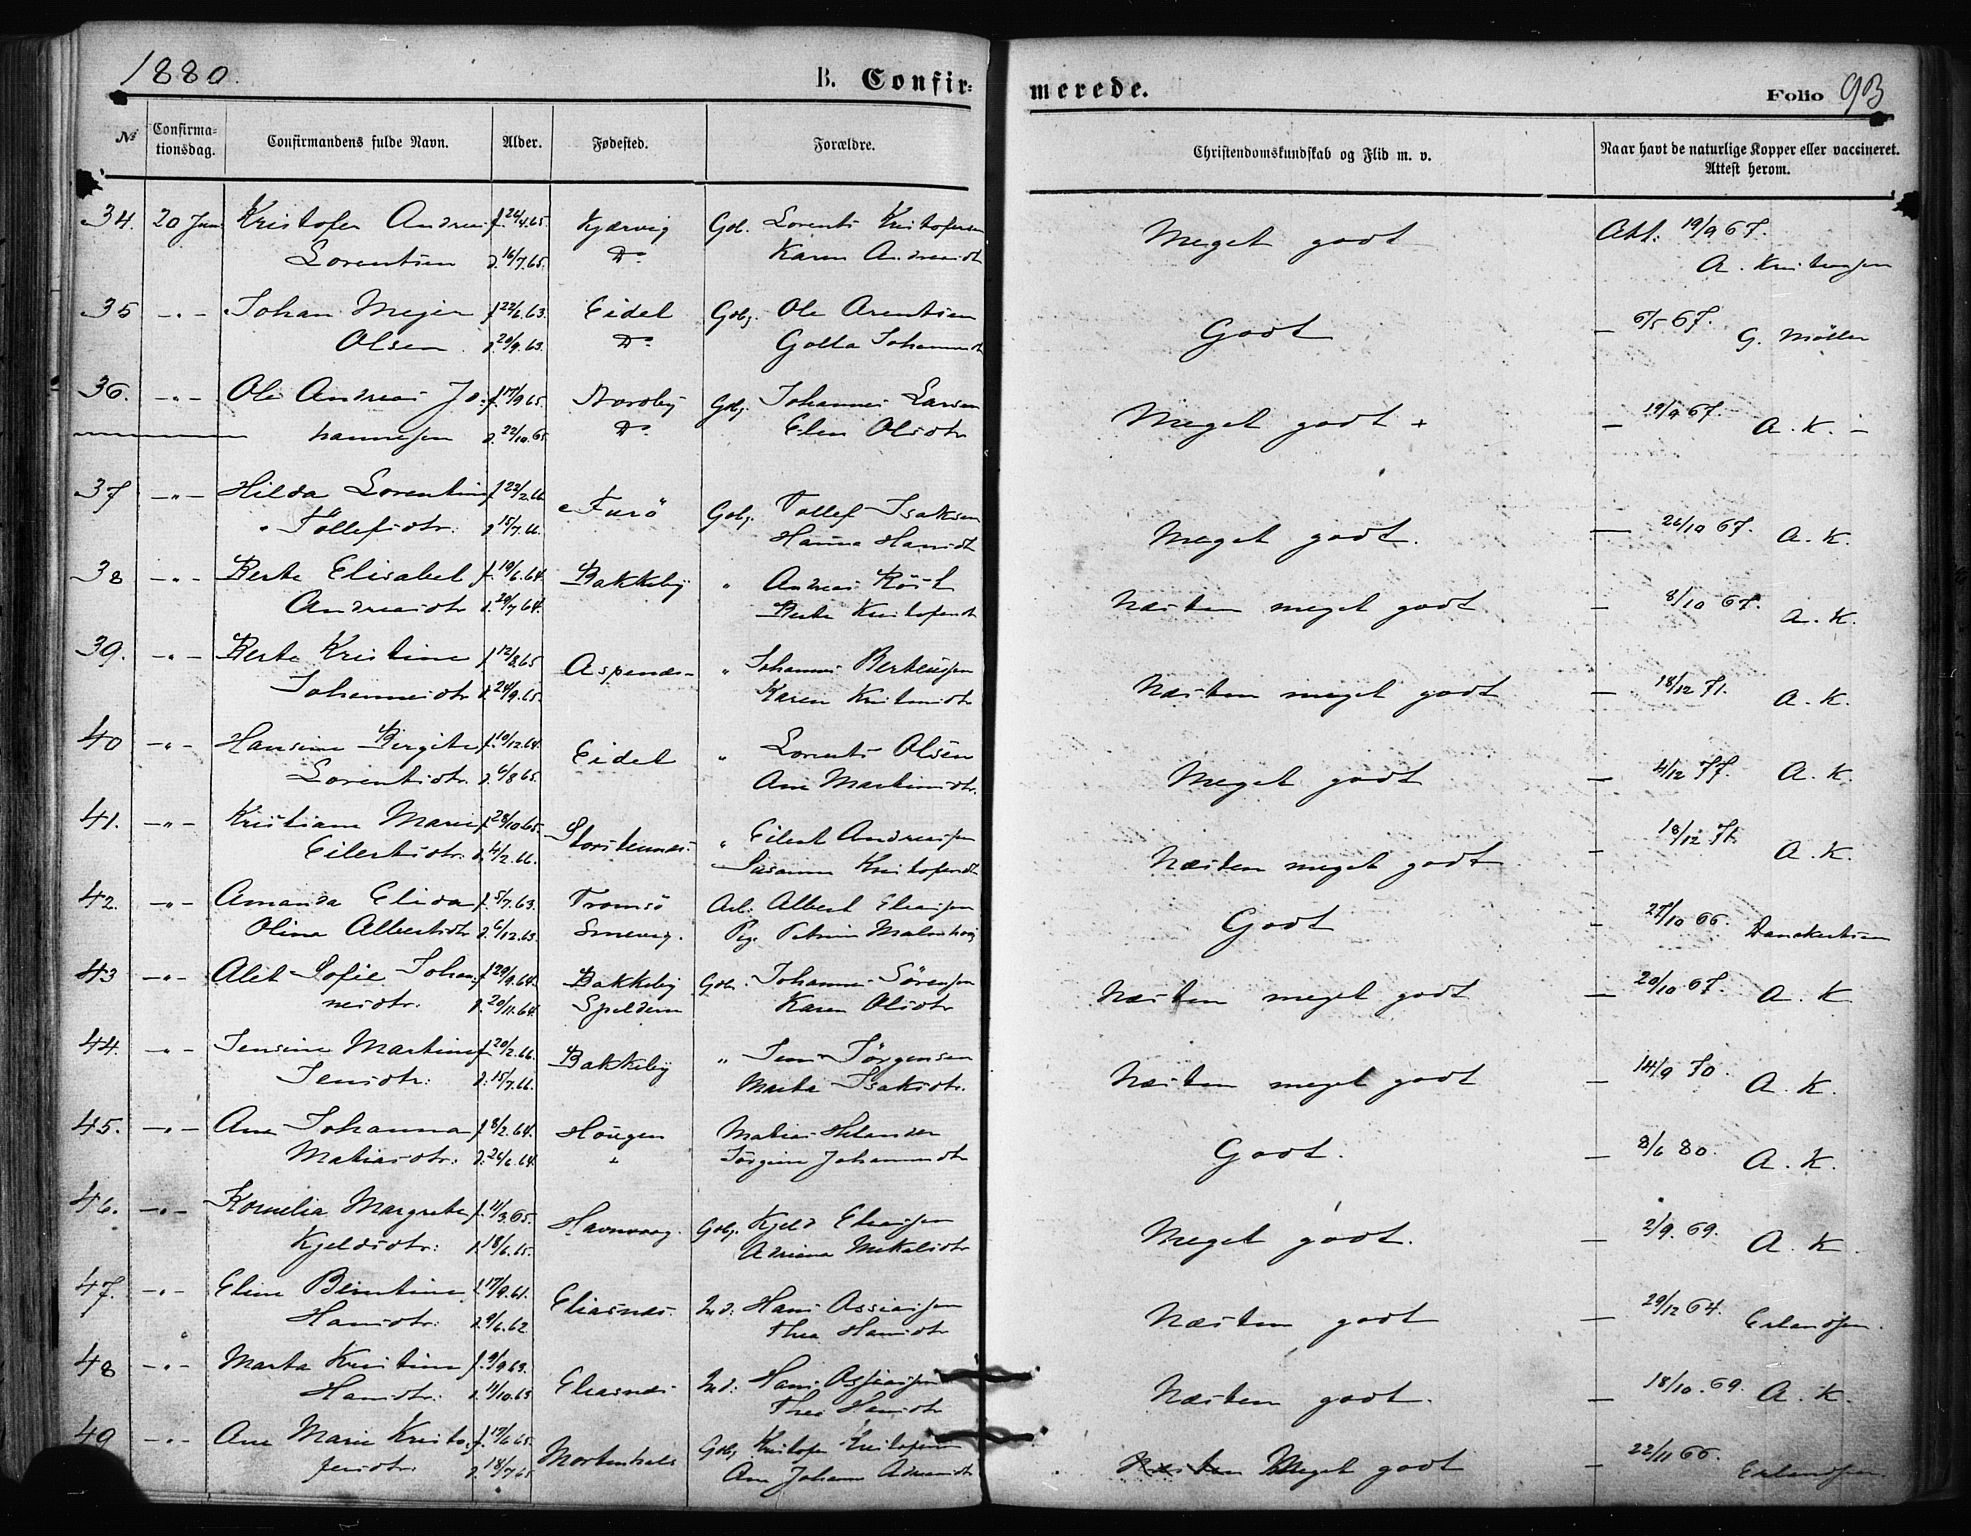 1880.
B. Confir-
merede.
Folio 93
No
Confirma-
tionsdag.
Confirmandens fulde Navn.
Alder.
Fødested.
Forældre.
Christendomskundskab og Flid m. v.
Naar havt de naturlige Kopper eller vaccineret.
Attest herom.
34. 20 Juni Kristofer Andreas f. 26/4.65. Kjærvig Gbl. Lorents Kristofersen Meget godt Att: 19/9 67.
Lorentsen d. 16/7.65. Do Karen Andreasdt A. Kristensen
35 -"- Johan Mejer f 22/6.63. Eidet Gbj. Ole Arentsen Godt - 6/5 67. G. Møller
Olsen d. 20/9.63. Do Golla Johannesdt
36. -"- Ole Andreas Jo- f. 17/9 65. Nordby Gbj. Johannes Larsen Meget godt + - 19/9 67. A. K. -
hannesen d. 22/10.65 Do Elen Olsdtr
37 -"- Hilda Lorentine f 22/2.66 Furö Gbj. Tollef Isaksen Meget godt. - 26/10 67. A. K.
Tollefsdtr: d. 15/7.66. Hanna Hansdt
38 -"- Berte Elisabet f. 19/6.64. Bakkeby " Andreas Röst Næsten meget godt - 8/10 67. A. K.
Andreasdtr d. 29/7 64. Berte Kristofersdt
39. -"- Berte Kristine f 12/8.65 Aspenæs - " Johannes Berteusen Næsten meget godt - 18/12 71. A. K.
Johannesdtr d. 24/9.65. Karen Kristensdtr
40 -"- Hansine Birgite f. 10/12.64. Eidet " Lorents Olsen Meget godt - 4/12 77. A. K.
Lorentsdtr. d. 6/8 65. Ane Martinsdtr.
41. -"- Kristiane Marie f. 28/10 65. Storstennæs. " Eilert Andreasen Næsten meget godt - 18/12 71. A. K.
Eilertsdtr. d. 4/2.66. Susanna Kristofersdt
42. -"- Amanda Elida f. 5/7.63. Tromsö Arb: Albert Eliasen Godt - 27/10 66. Danckertsen
Olina Albertsdtr d. 6/12.63. Pige Petrine
43 -"- Alet Sofie Johan- f 29/9.64. Bakkeby Gbr. Johannes Sörensen Næsten meget godt - 20/10 67. A. K
nesdtr. d. 20/11.64 Spilderen Karen Olsdtr
44. -"- Jensine Martine f. 20/2.66. Bakkeby " Jens Jörgensen Næsten meget godt - 14/9 70. A. K.
Jensdtr: d. 15/7.66. Marta Isaksdtr.
45. -"- Ane Johanna f. 8/2.64. Hougen Matias Helander Godt. - 8/6 80. A. K.
Matiasdtr: d. 26/6.64 " Jörgine Johannesdtr
46. -"- Kornelia Margrete f. 11/3.65. Havnvaag. Gbj. Kjeld Eliasen Meget godt. - 2/9.69. A. K.
Kjeldsdtr: d. 18/6.65. Adriana Mikalsdtr
47. -"- Eline Berntine f. 17/9.61. Eliasnæs. Ind: Hans Assiasen Næsten godt - 29/12 64. Erlandsen.
Hansdtr: d. 9/6.62 Thea Hansdtr
48 -"- Marta Kristine f. 9/9 63. Eliasnæs Ind: Hans Assiasen Næsten godt. - 18/10.69. A. K
Hansdtr: d. 11/10.63 Thea Hansdtr
49 -"- Ane Marie Kristo- f. 17/6 65. Mortenhals Gbj Kristofer Kristofersen Næsten Meget godt - 22/11 66. Erlandsen.
fersdtr. d. 18/7.65 Ane Johanna Adriansdt